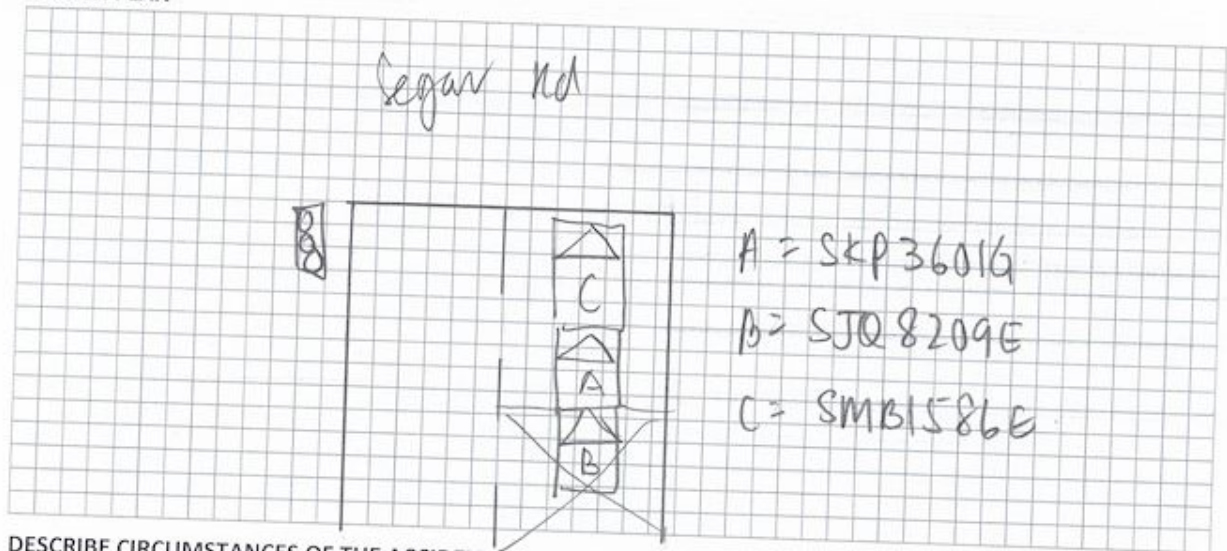 Segar Rd
C
A
B
A = SKP3601G
B = SJQ8209E
C = SMB1586E
DESCRIBE CIRCUMSTANCES OF THE